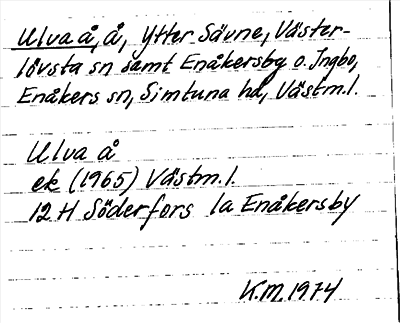 Ulva å, å, Ytter Sävne, Väster-
lövsta sn samt Enåkersby o. Ingbo,
Enåkers sn, Simtuna hd, Västm.l.
Ulva å
ek (1965) Västm.l.
12 H Söderfors 1a Enåkersby
K.M. 1974